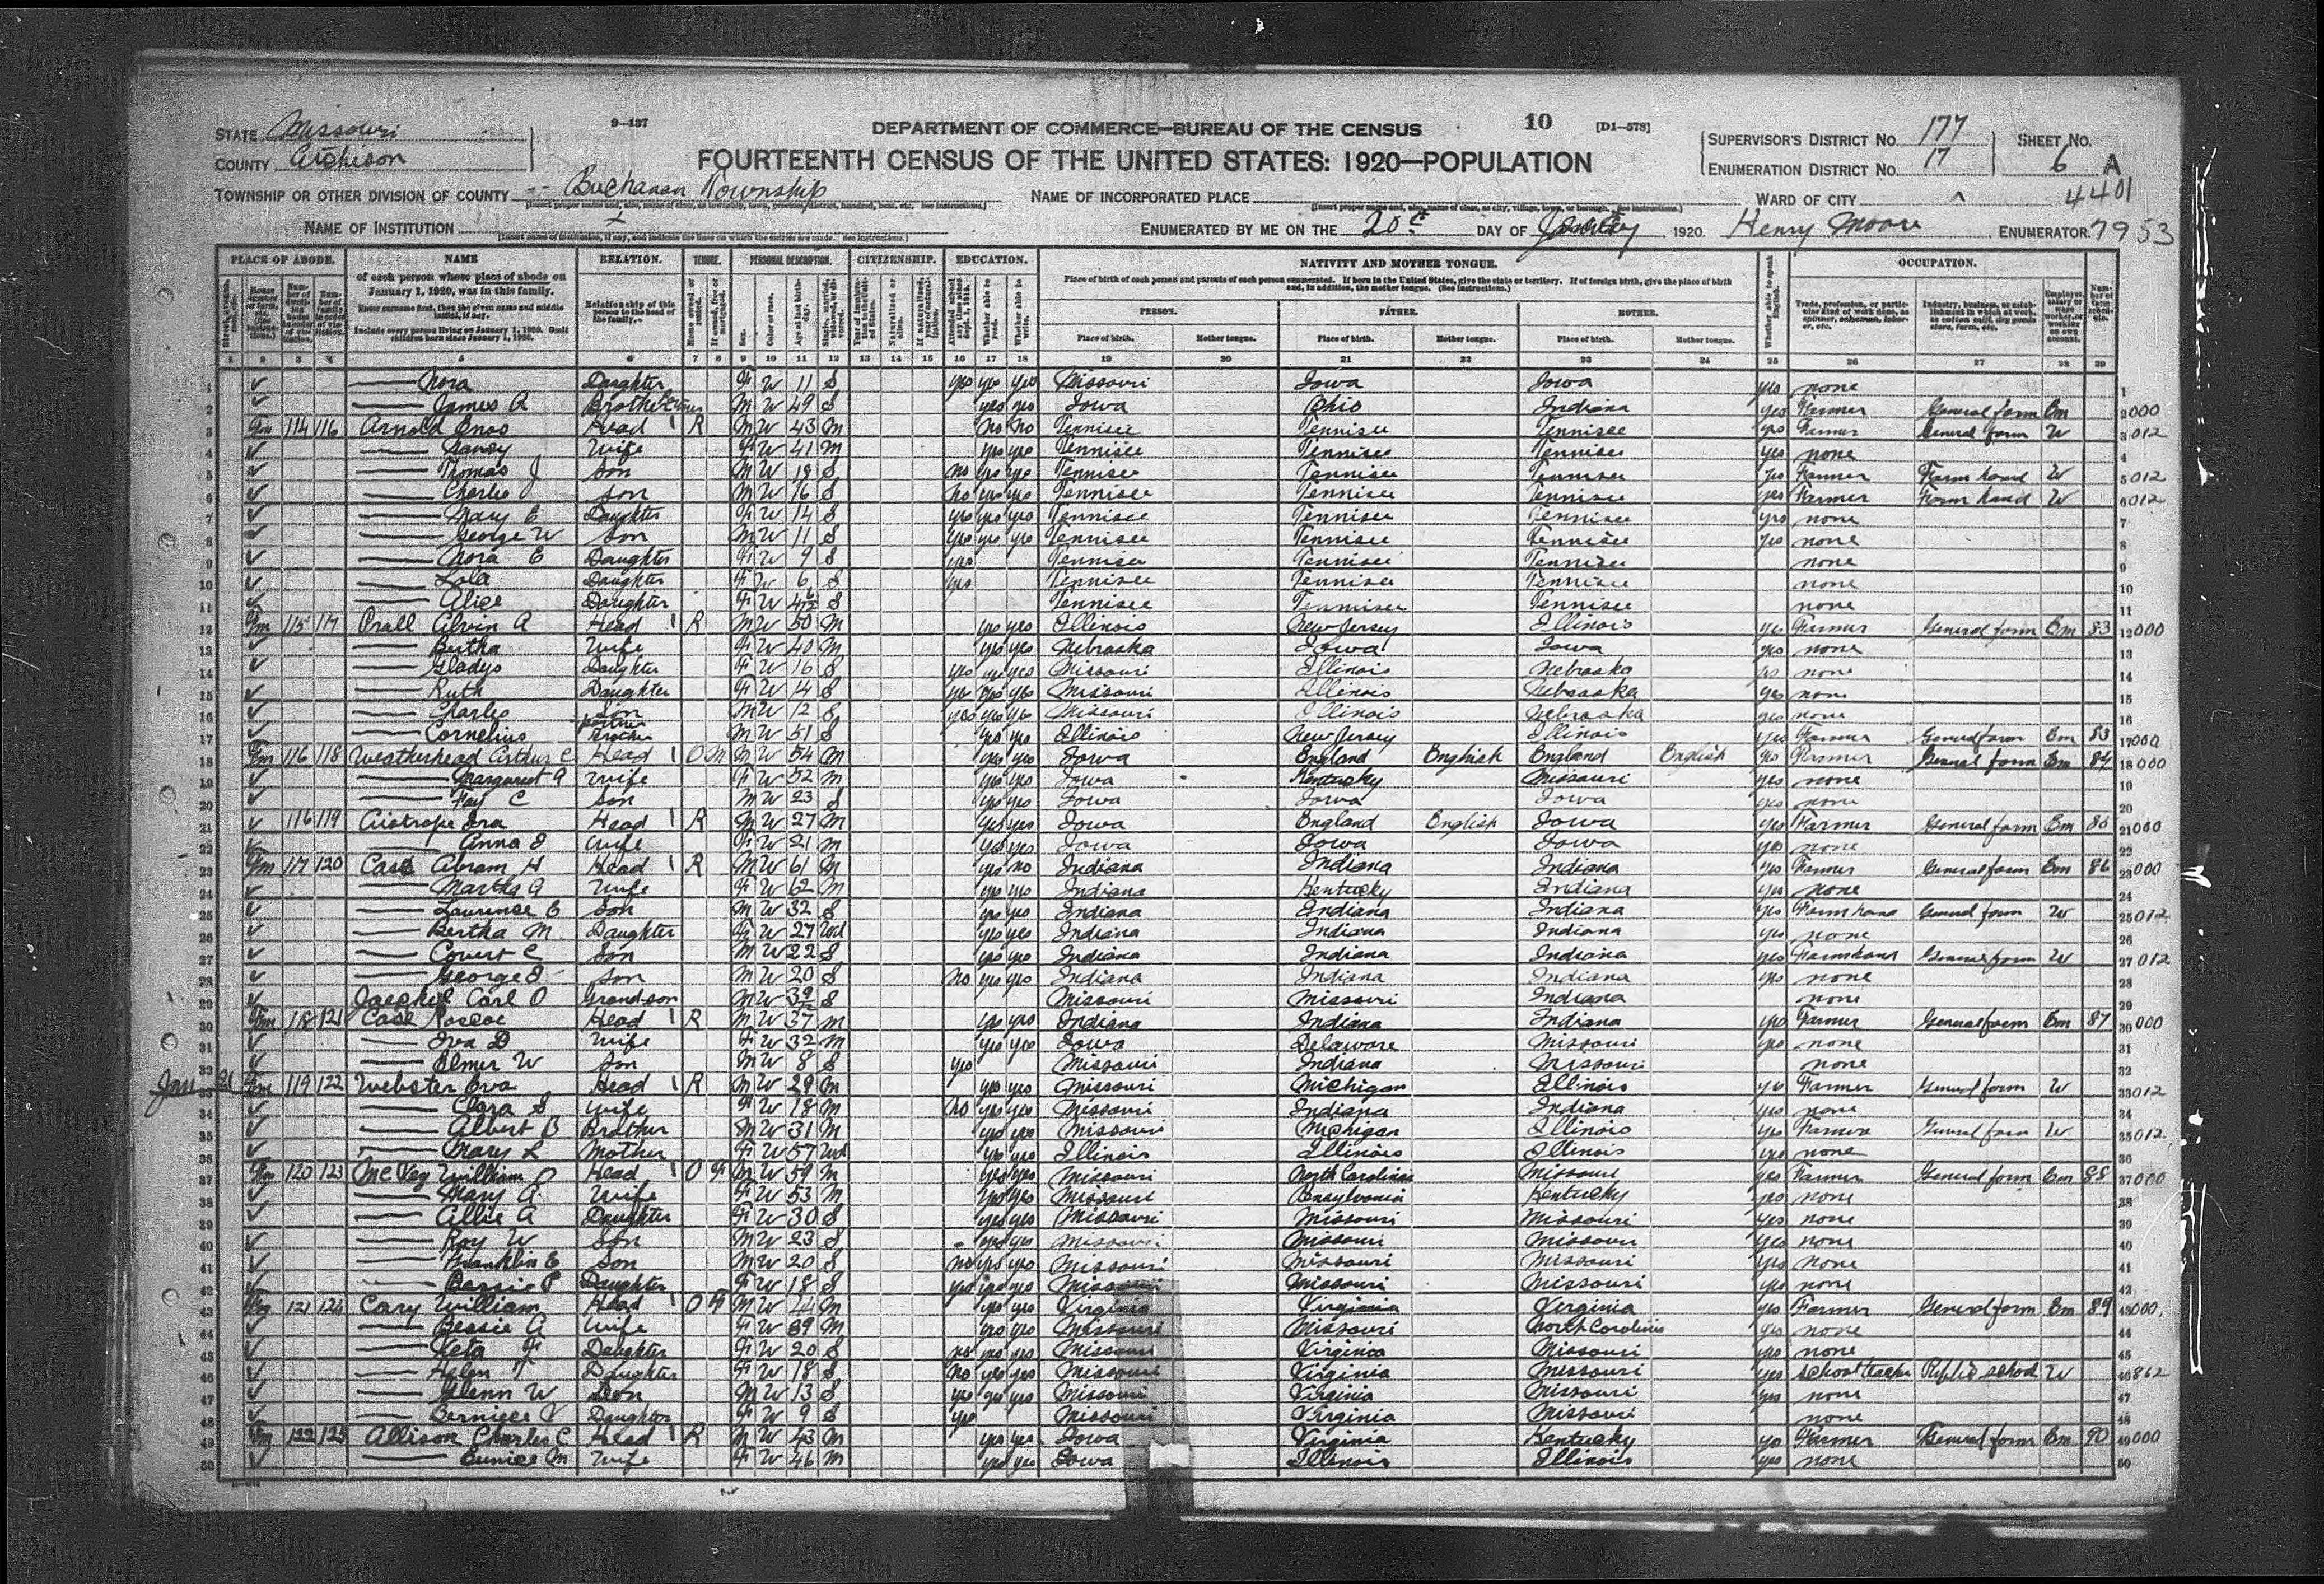 9—137
DEPARTMENT OF COMMERCE—BUREAU OF THE CENSUS
10 [D1—578]
FOURTEENTH CENSUS OF THE UNITED STATES: 1920—POPULATION
STATE Missouri
COUNTY Atchison
TOWNSHIP OR OTHER DIVISION OF COUNTY Buchanan Township
NAME OF INCORPORATED PLACE
NAME OF INSTITUTION X
SUPERVISOR'S DISTRICT NO. 177
ENUMERATION DISTRICT NO. 17
SHEET NO. 6 A
WARD OF CITY
4401
ENUMERATED BY ME ON THE 20th DAY OF 1920. Henry Moore ENUMERATOR.
7953
PLACE OF ABODE. NAME RELATION. TENURE. PERSONAL DESCRIPTION. CITIZENSHIP. EDUCATION. NATIVITY AND MOTHER TONGUE. OCCUPATION.
of each person whose place of abode on January 1, 1920, was in this family.
Enter surname first, then the given name and middle initial, if any.
Include every person living on January 1, 1920. Omit children born since January 1, 1920.
Relationship of this person to the head of the family.
Place of birth of each person and parents of each person enumerated. If born in the United States, give the state or territory. If of foreign birth, give the place of birth and, in addition, the mother tongue. (See instructions.)
PERSON. FATHER. MOTHER.
Place of birth. Mother tongue. Place of birth. Mother tongue. Place of birth. Mother tongue.
1 2 3 4 5 6 7 8 9 10 11 12 13 14 15 16 17 18 19 20 21 22 23 24 25 26 27 28 29
1 Nora Daughter F W 11 S yes yes yes Missouri Iowa Iowa yes none
2 James A Brother M W 49 S yes yes Iowa Ohio Indiana yes Farmer General farm Em 000
3 Fm 114 116 Arnold Enos Head 1 R M W 43 M No No Tennisee Tennisee Tennisee yes Farmer General farm W 012
4 Nancy Wife F W 41 M yes yes Tennisee Tennisee Tennisee yes none
5 Thomas J Son M W 18 S no yes yes Tennisee Tennisee Tennisee yes Farmer Farm hand W 012
6 Charles Son M W 16 S no yes yes Tennisee Tennisee Tennisee yes Farmer Farm hand W 012
7 Mary E Daughter F W 14 S yes yes yes Tennisee Tennisee Tennisee yes none
8 George W Son M W 11 S yes yes yes Tennisee Tennisee Tennisee yes none
9 Nora E Daughter F W 9 S yes Tennisee Tennisee Tennisee none
10 Lola Daughter F W 6 S yes Tennisee Tennisee Tennisee none
11 Alice Daughter F W 4 6/12 S Tennisee Tennisee Tennisee none
12 Fm 115 117 Prall Alvin A Head 1 R M W 50 M yes yes Illinois New Jersey Illinois yes Farmer General farm Em 83 000
13 Bertha Wife F W 40 M yes yes Nebraska Iowa Iowa yes none
14 Gladys Daughter F W 16 S yes yes yes Missouri Illinois Nebraska yes none
15 Ruth Daughter F W 14 S yes yes yes Missouri Illinois Nebraska yes none
16 Charles Son M W 12 S yes yes yes Missouri Illinois Nebraska yes none
17 Cornelius partner Brother M W 51 S yes yes Illinois New Jersey Illinois yes Farmer General farm Em 83 000
18 Fm 116 118 Weatherhead Arthur C Head 1 O M M W 54 M yes yes Iowa England English England English yes Farmer General farm Em 84 000
19 Margaret A Wife F W 52 M yes yes Iowa Kentucky Missouri yes none
20 Fay C Son M W 23 S yes yes Iowa Iowa Iowa yes none
21 116 119 Aistrope Ira Head 1 R M W 27 M yes yes Iowa England English Iowa yes Farmer General farm Em 85 000
22 Anna I Wife F W 21 M yes yes Iowa Iowa Iowa yes none
23 Fm 117 120 Case Abram H Head 1 R M W 61 M yes no Indiana Indiana Indiana yes Farmer General farm Em 86 000
24 Martha A Wife F W 62 M yes yes Indiana Kentucky Indiana yes none
25 Laurence E Son M W 32 S yes yes Indiana Indiana Indiana yes Farm hand General farm W 012
26 Bertha M Daughter F W 27 Wd yes yes Indiana Indiana Indiana yes none
27 Covert C Son M W 22 S yes yes Indiana Indiana Indiana yes Farmhand General farm W 012
28 George I Son M W 20 S no yes yes Indiana Indiana Indiana yes none
29 Carl O Grandson M W S Missouri Missouri Indiana none
30 Fm 118 121 Case Roscoe Head 1 R M W 37 M yes yes Indiana Indiana Indiana yes Farmer General farm Em 87 000
31 Iva D Wife F W 32 M yes yes Iowa Delaware Missouri yes none
32 Elmer W Son M W 8 S yes Missouri Indiana Missouri none
Jan 21
33 Fm 119 122 Webster Eva Head 1 R M W 29 M yes yes Missouri Michigan Illinois yes Farmer General farm W 012
34 Clara S Wife F W 18 M no yes yes Missouri Indiana Indiana yes none
35 Albert B Brother M W 31 M yes yes Missouri Michigan Illinois yes Farmer General farm W 012
36 Mary L Mother F W 57 Wd yes yes Illinois Illinois Illinois yes none
37 Fm 120 123 McVey William O Head 1 O F M W 59 M yes yes Missouri North Carolina Missouri yes Farmer General farm Em 88 000
38 Mary A Wife F W 53 M yes yes Missouri Pensylvania Kentucky yes none
39 Allie A Daughter F W 30 S yes yes Missouri Missouri Missouri yes none
40 Roy W Son M W 23 S yes yes Missouri Missouri Missouri yes none
41 Franklin E Son M W 20 S no yes yes Missouri Missouri Missouri yes none
42 Bessie P Daughter F W 18 S yes yes yes Missouri Missouri Missouri yes none
43 Fm 121 124 Cary William Head 1 O F M W 44 M yes yes Virginia Virginia Virginia yes Farmer General farm Em 89 000
44 Bessie A Wife F W 39 M yes yes Missouri Missouri North Carolina yes none
45 Neta F Daughter F W 20 S no yes yes Missouri Virginia Missouri yes none
46 Helen T Daughter F W 18 S no yes yes Missouri Virginia Missouri yes school teacher Public school W 862
47 Glenn W Son M W 13 S yes yes yes Missouri Virginia Missouri yes none
48 Berniece V Daughter F W 9 S yes Missouri Virginia Missouri none
49 Fm 122 125 Allison Charles C Head 1 R M W 43 M yes yes Iowa Virginia Kentucky yes Farmer General farm Em 90 000
50 Eunice M Wife F W 46 M yes yes Iowa Illinois Illinois yes none